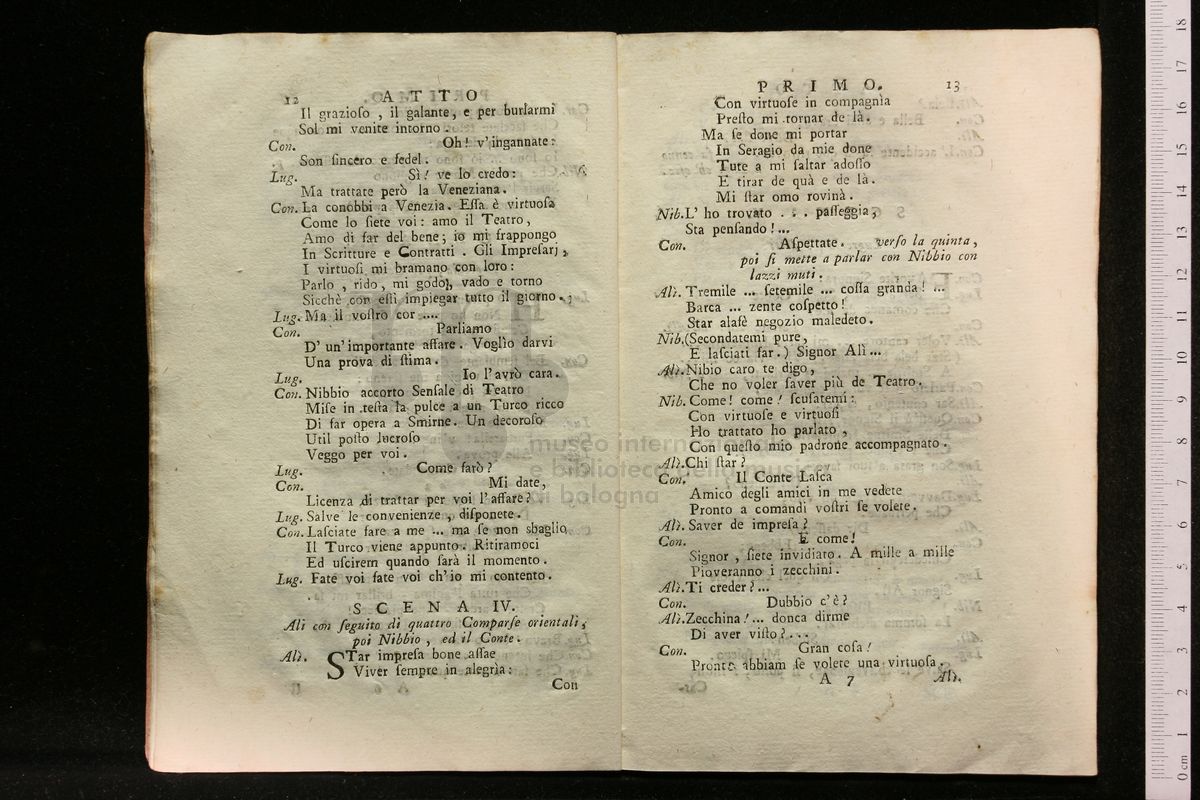 12 ATTO
Il grazioſo , il galante, e per burlarmi
Sol mi venite intorno .
Con. Oh! v'ingannate:
Son ſincero e fedel.
Lug. Sì! ve lo credo:
Ma trattate però la Veneziana.
Con. La conobbi a Venezia. Eſſa è virtuoſa
Come lo ſiete voi: amo il Teatro,
Amo di far del bene; io mi frappongo
In Scritture e Contratti . Gli Impreſarj,
I virtuoſi mi bramano con loro:
Parlo , rido, mi godo, vado e torno
Sicchè con eſſi impiegar tutto il giorno.
Lug. Ma il voſtro cor ....
Con. Parliamo
D' un' importante affare. Voglio darvi
Una prova di ſtima.
Lug. Io l'avrò cara.
Con. Nibbio accorto Senſale di Teatro
Miſe in teſta la pulce a un Turco ricco
Di far opera a Smirne. Un decoroſo
Util poſto lucroſo
Veggo per voi.
Lug. Come farò?
Con. Mi date,
Licenza di trattar per voi l'affare?
Lug. Salve le convenienze , diſponete.
Con. Laſciate fare a me ... ma ſe non sbaglio
Il Turco viene appunto. Ritiramoci
Ed uſcirem quando ſarà il momento.
Lug. Fate voi fate voi ch'io mi contento.
SCENA IV.
Ali con ſeguito di quattro Comparſe orientali,
poi Nibbio , ed il Conte.
Alì. STar impreſa bone aſſae
Viver ſempre in alegria:
Con
PRIMO. 13
Con virtuoſe in compagnìa
Preſto mi tornar de là.
Ma ſe done mi portar
In Seragio da mie done
Tute a mi ſaltar adoſſo
E tirar de quà e de là.
Mi ſtar omo rovinà.
Nib. L' ho trovato . . . paſſeggia,
Sta penſando!...
Con. Aſpettate. verſo la quinta,
poi ſi mette a parlar con Nibbio con
lazzi muti.
Alì. Tremile ... ſetemile ... coſſa granda! ...
Barca ... zente coſpetto!
Star alafè negozio maledeto.
Nib. (Secondatemi pure,
E laſciati far.) Signor Alì...
Alì. Nibio caro te digo,
Che no voler ſaver più de Teatro.
Nib. Come! come! ſcuſatemi:
Con virtuoſe e virtuoſi
Ho trattato ho parlato ,
Con queſto mio padrone accompagnato.
Alì. Chi ſtar?
Con. Il Conte Laſca
Amico degli amici in me vedete
Pronto a comandi voſtri ſe volete.
Alì. Saver de impreſa?
Con. E come!
Signor , ſiete invidiato. A mille a mille
Pioveranno i zecchini.
Alì. Ti creder?...
Con. Dubbio c'è?
Alì. Zecchina!... donca dirme
Di aver viſto?...
Con. Gran coſa!
Pronta abbiam ſe volete una virtuoſa.
A 7 Alì.
museo internazionale
e biblioteca della musica
di bologna
0 cm 1 2 3 4 5 6 7 8 9 10 11 12 13 14 15 16 17 18